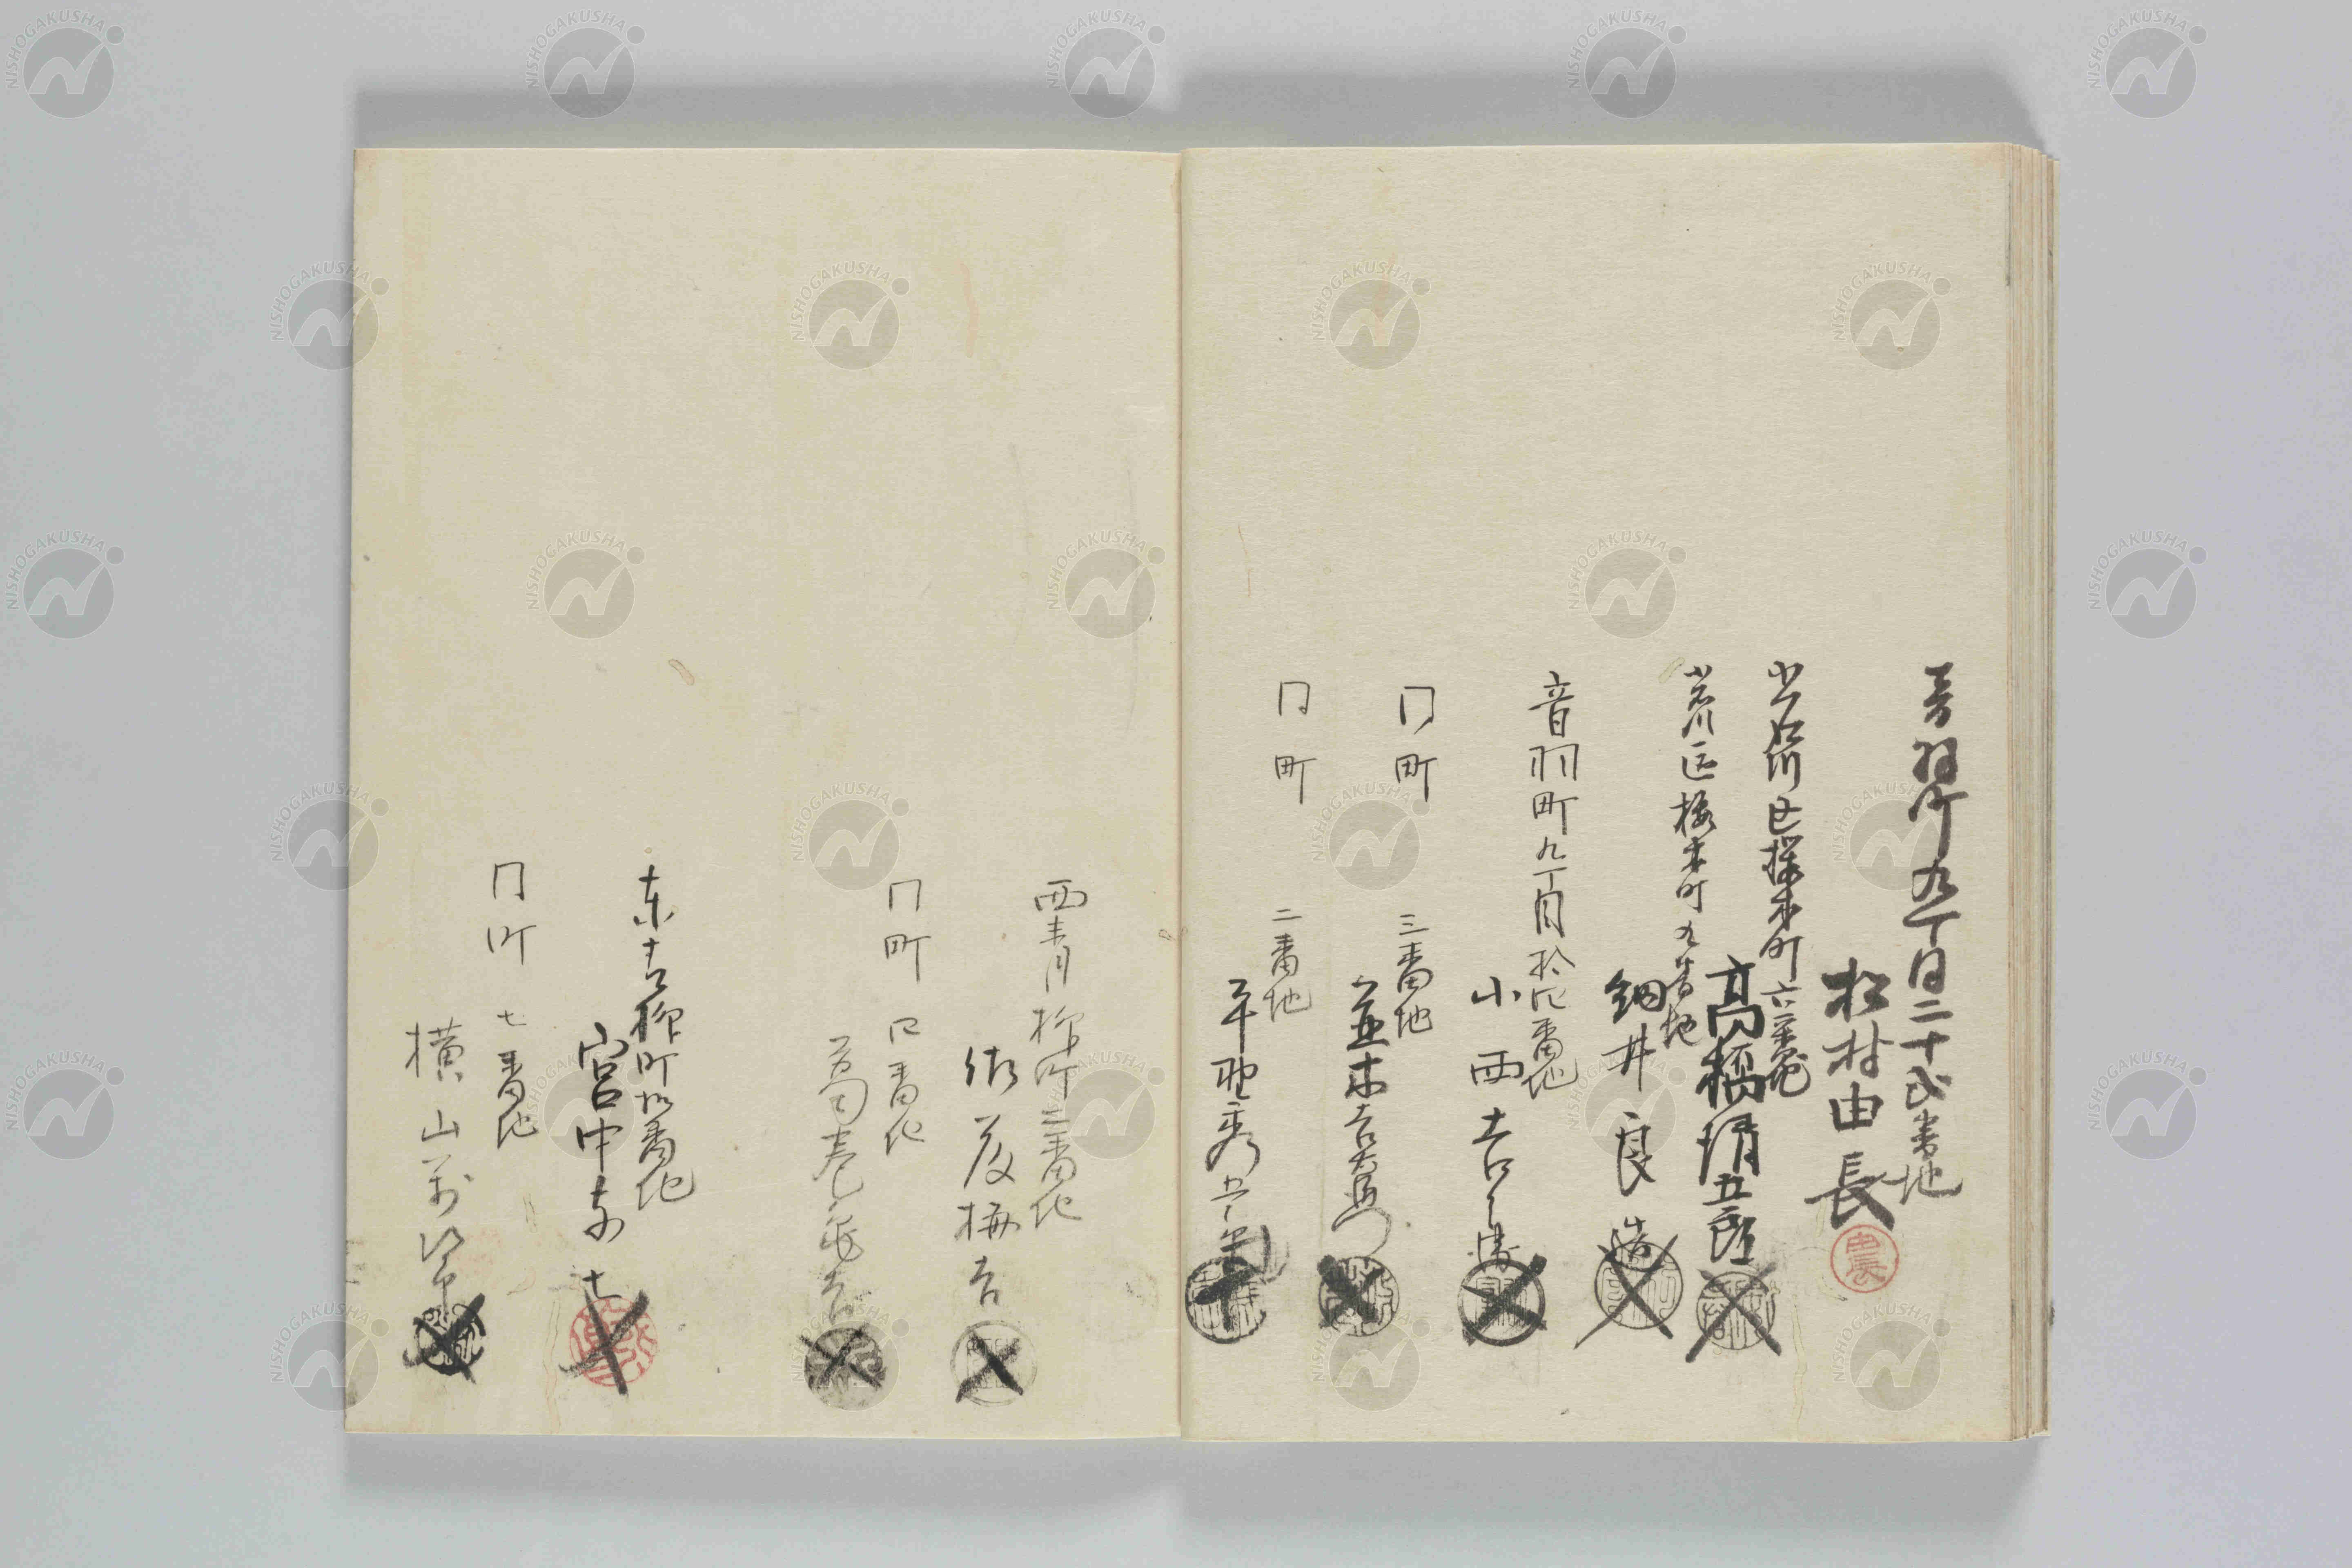 音羽町九丁目二十弐番地
松村由長
小石川区桜木町六番地
高橋清五郎
小石川区桜木町九番地
細井良造
音羽町九丁目拾四番地
小西吉
同町 三番地
並木吉右衛門
同町 二番地
平野秀
西青柳町三番地
佐藤梅吉
同町四番地
吉
東青柳町拾番地
宮中
同町七番地
横山
NISHOGAKUSHA